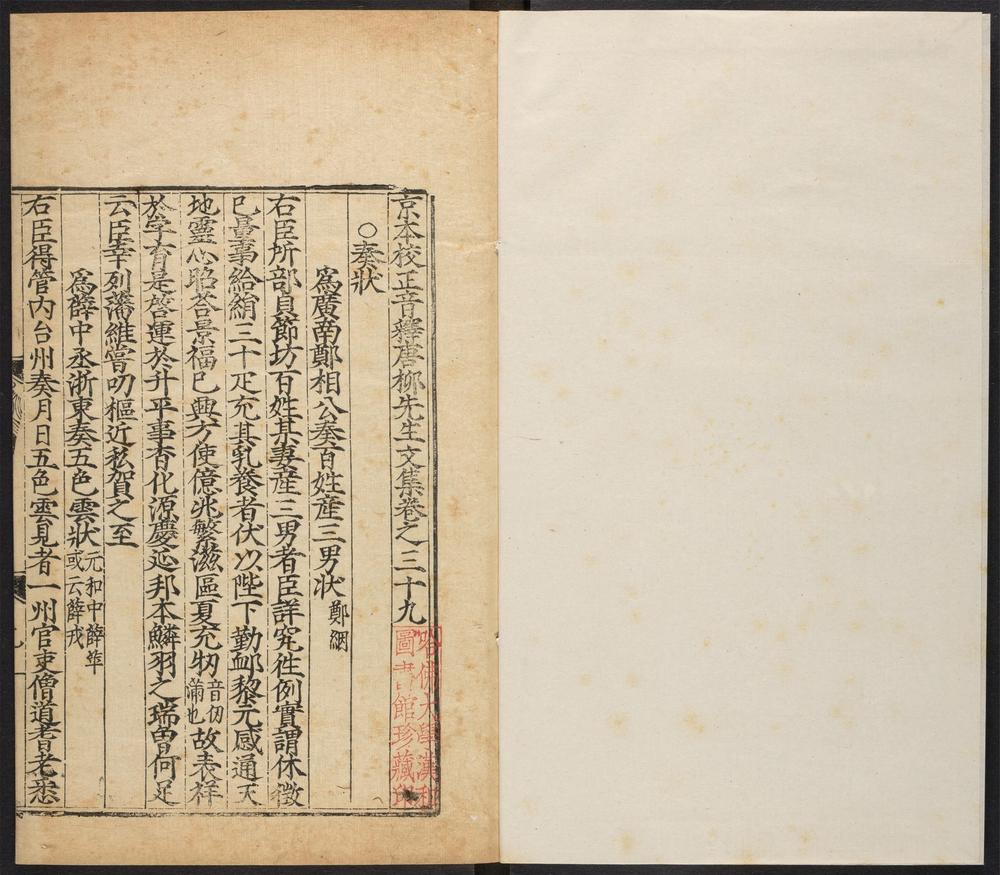 京本校正音釋唐柳先生文集卷之三十九
○奏狀
爲廣南鄭相公奏百姓産三男狀鄭絪
右臣所部貞節坊百姓某妻産三男者臣詳究徃例實謂休徵
已量事給絹三十疋充其乳養者伏以陛下勤䘏黎元感通天
地靈心昭荅景福已興方使億兆繁滋區夏充牣音仞滿也故表祥
於字育是啓運於升平事杳化源慶延邦本鱗羽之瑞曽何足
云臣幸列藩維嘗叨樞近抃賀之至
爲薛中丞浙東奏五色雲狀元和中薛苹或云薛戎
右臣得管内台州奏月日五色雲見者一州官吏僧道耆老悉
哈佛大學漢和
圖書館珍藏印